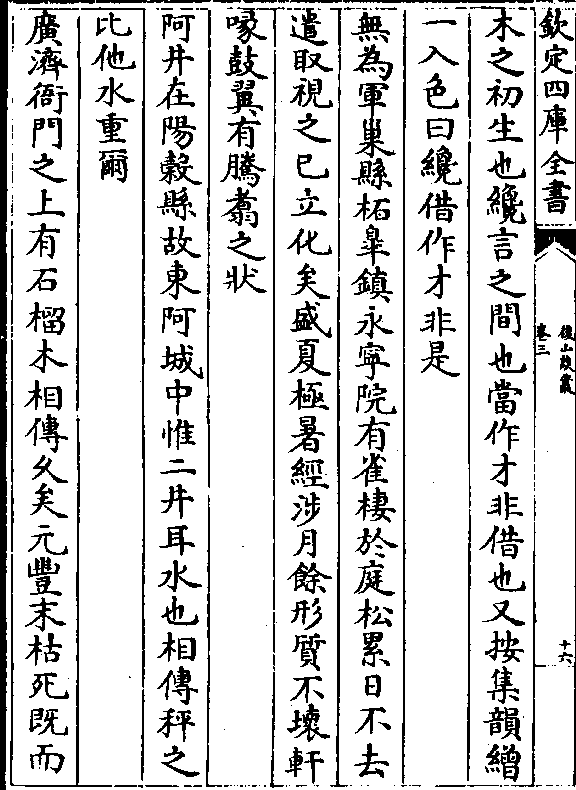 欽定四庫全書
後山談叢
卷三
十六
木之初生也纔言之間也當作才非借也又按集韻繒
一入色曰纔借作才非是
無為軍巢縣柘臯鎮永寧院有雀棲於庭松累日不去
遣取視之已立化矣盛夏極暑經涉月餘形質不壞軒
喙鼓翼有騰翥之狀
阿井在陽穀縣故東阿城中惟二井耳水也相傳秤之
比他水重爾
廣濟衙門之上有石榴木相傳久矣元豐末枯死既而